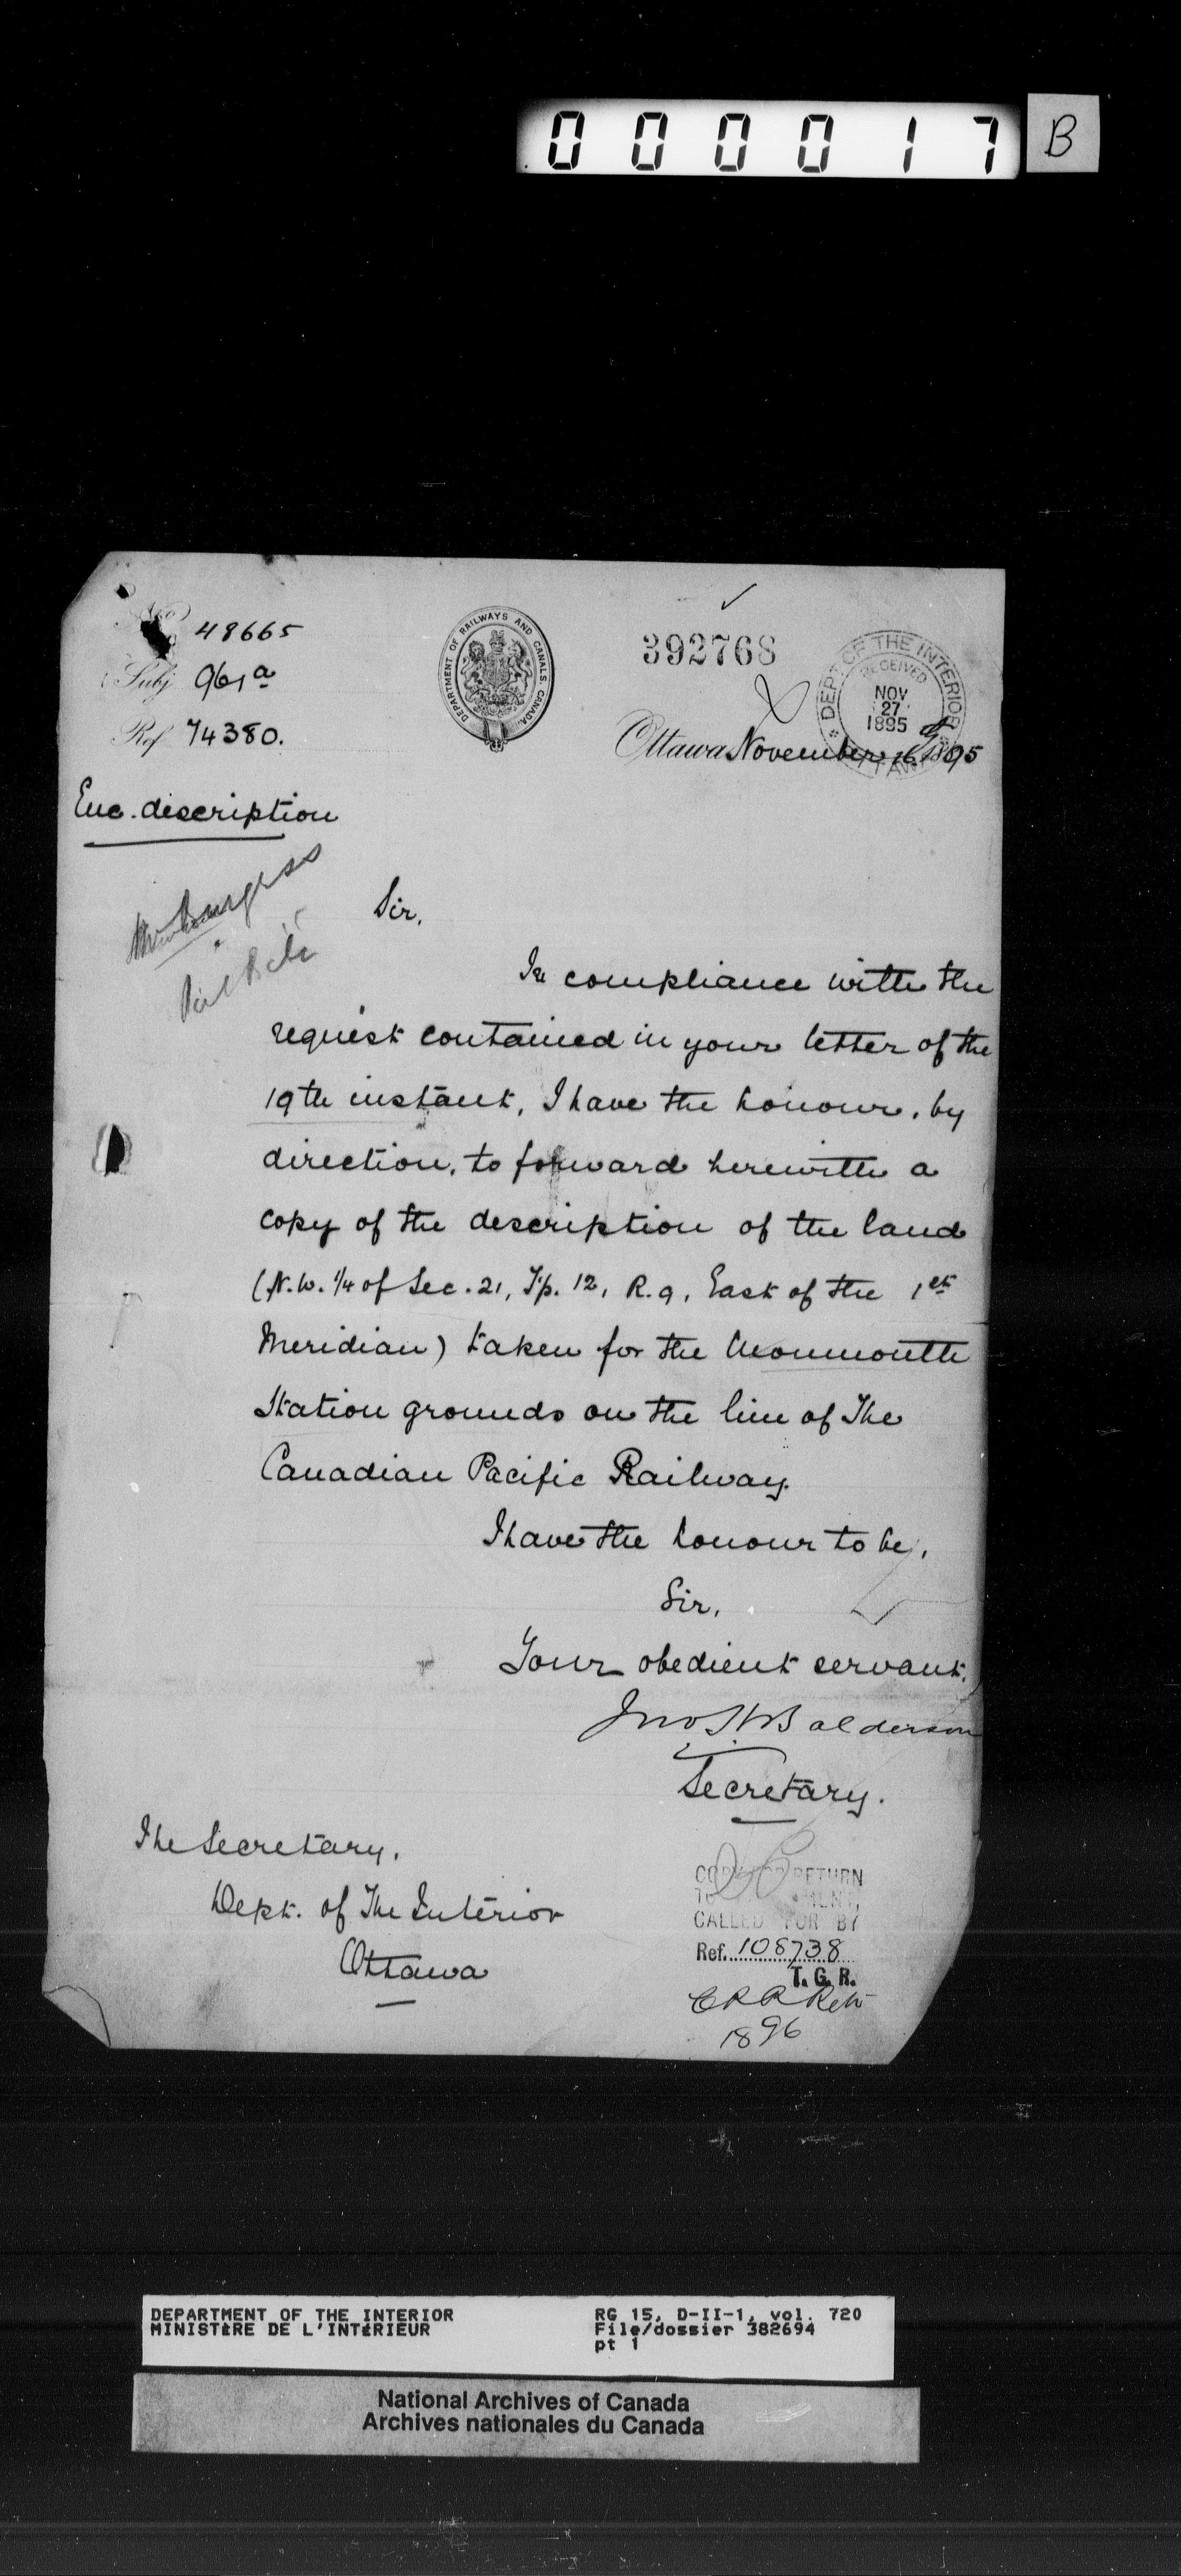 000017 B
No 48665
Subj 961a
Ref 74380.
DEPARTMENT OF RAILWAYS AND CANALS CANADA.
392768
DEPT OF THE INTERIOR
RECEIVED
NOV
27
1895
OTTAWA
Ottawa November 1895
Enc. description
Sir,
In compliance with the
request contained in your letter of the
19th instant, I have the honour, by
direction, to forward herewith a
copy of the description of the land
(N.W. 1/4 of Sec. 21, Tp. 12, R. 9, East of the 1st
Meridian) taken for the Monmouth
Station grounds on the line of The
Canadian Pacific Railway.
I have the honour to be,
Sir,
Your obedient servant.
Jno. H. Balderson
Secretary.
The Secretary,
Dept. of The Interior
Ottawa
COPY RETURN
CALLED FOR BY
Ref. 108738
T. G. R.
1896
DEPARTMENT OF THE INTERIOR
MINISTÈRE DE L'INTÉRIEUR
RG 15, D-II-1, vol. 720
File/dossier 382694
pt 1
National Archives of Canada
Archives nationales du Canada